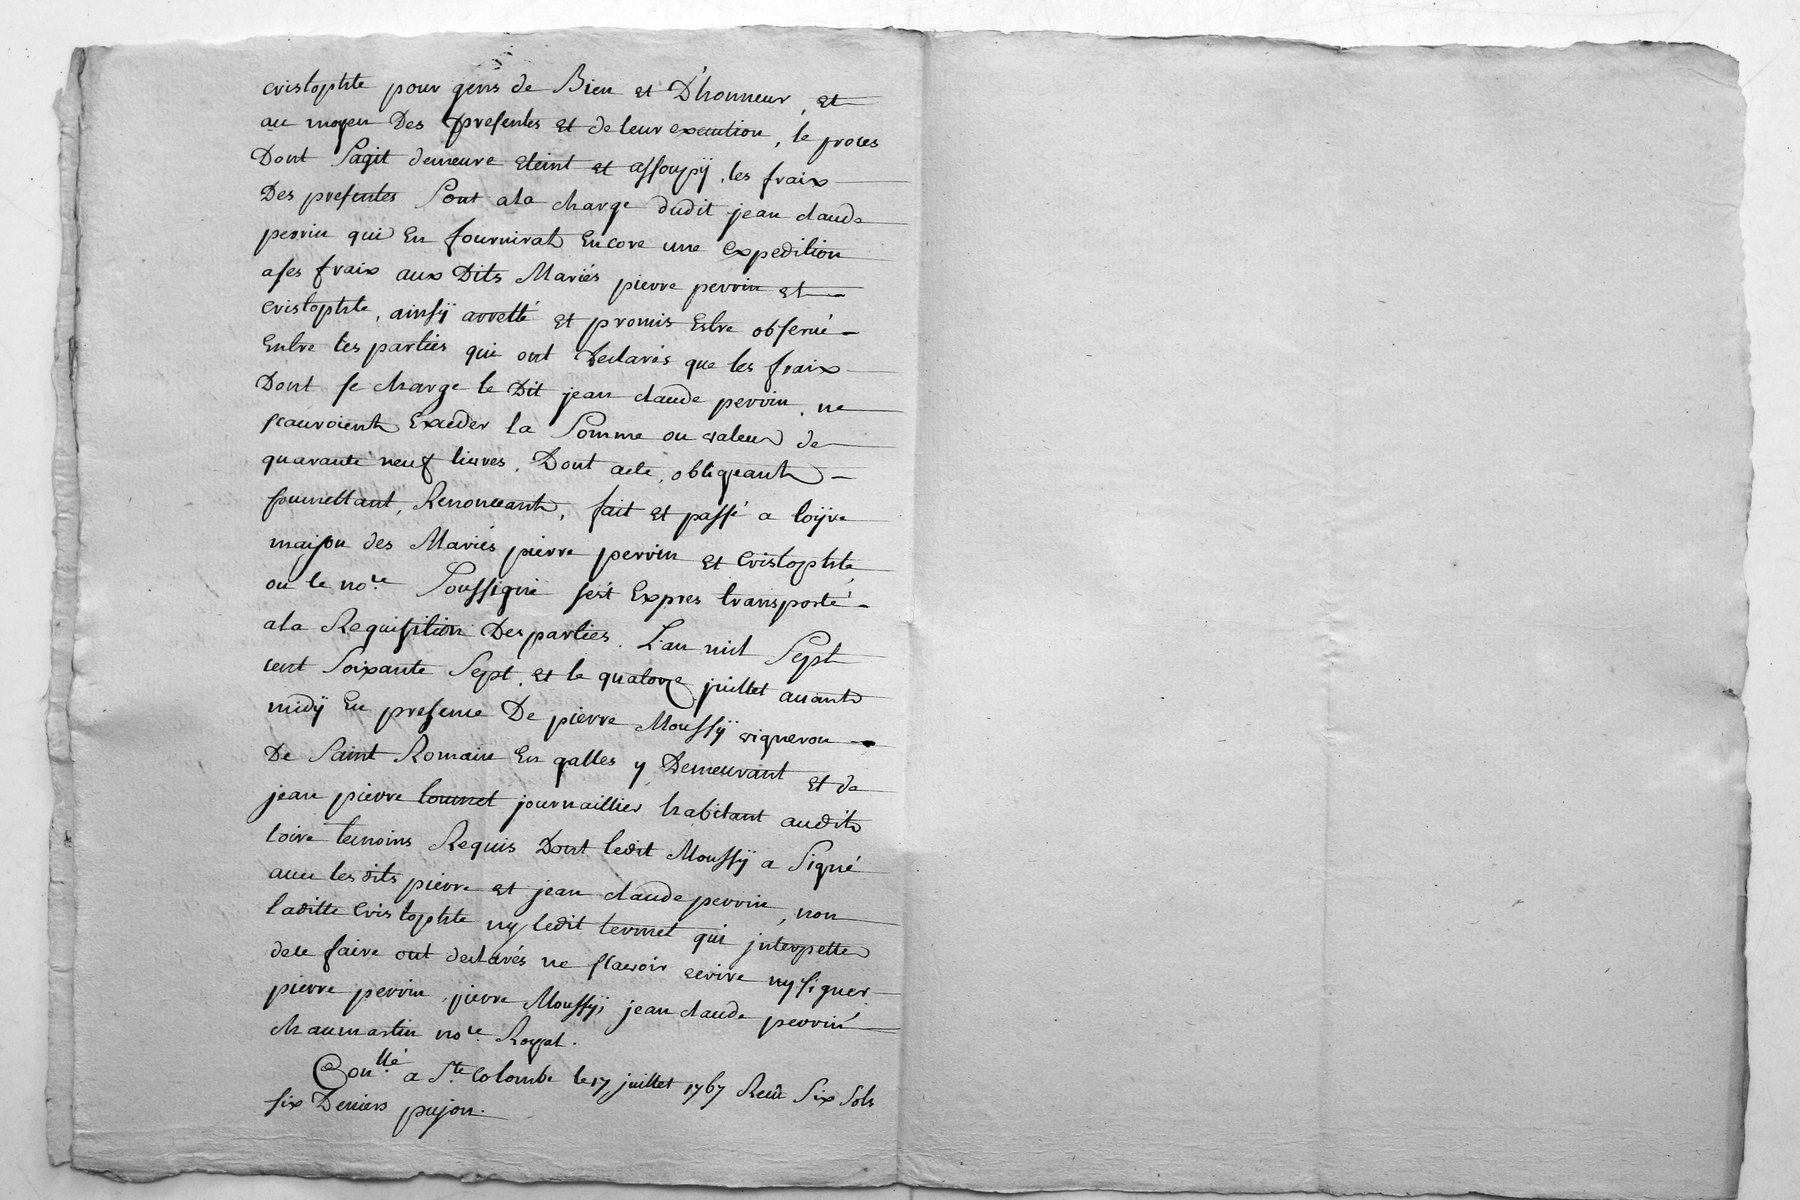 cristophle pour gens de Bien et D'honneur, et
au moyen Des presentes et de leur execution, le proces
Dont Sagit demeure eteint et assoupÿ, les fraix
Des presentes Sont ala charge dudit jean claude
perrin qui En fournirat Encore une Expedition
ases fraix aux Dits Mariés pierre perrin et
cristophle, ainsÿ arretté et promis Estre observé
Entre les parties qui ont Declarés que les fraix
Dont se charge le Dit jean claude perrin, ne
scauroient Exceder la Somme ou valeur de
quarante neuf livres, Dont acte, obligeant
soumettant, Renonceant, fait et passé a loÿre
maison des Mariés pierre perrin et cristophle,
ou le no.re Soussigné s'est Expres transporté
ala Requisition Des parties. L'an mil Sept
cent Soixante Sept, et le quatorze juillet avant
midÿ En presence De pierre Moussÿ vigneron
De Saint Romain En galles y Demeurant et de
jean pierre journaillier habitant audit
loire temoins Requis Dont ledit Moussÿ a Signé
avec les dits pierre et jean claude perrin, non
laditte Cristophle ny ledit qui jnterpellé
dele faire ont declarés ne scavoir ecrire ny signer
pierre perrin, pierre Moussÿ, jean claude perrin
chaumartin no.re Royal.
Con.llé a S.te Colombe le 17 juillet 1767 Recû Six Sols
six Deniers pujon.